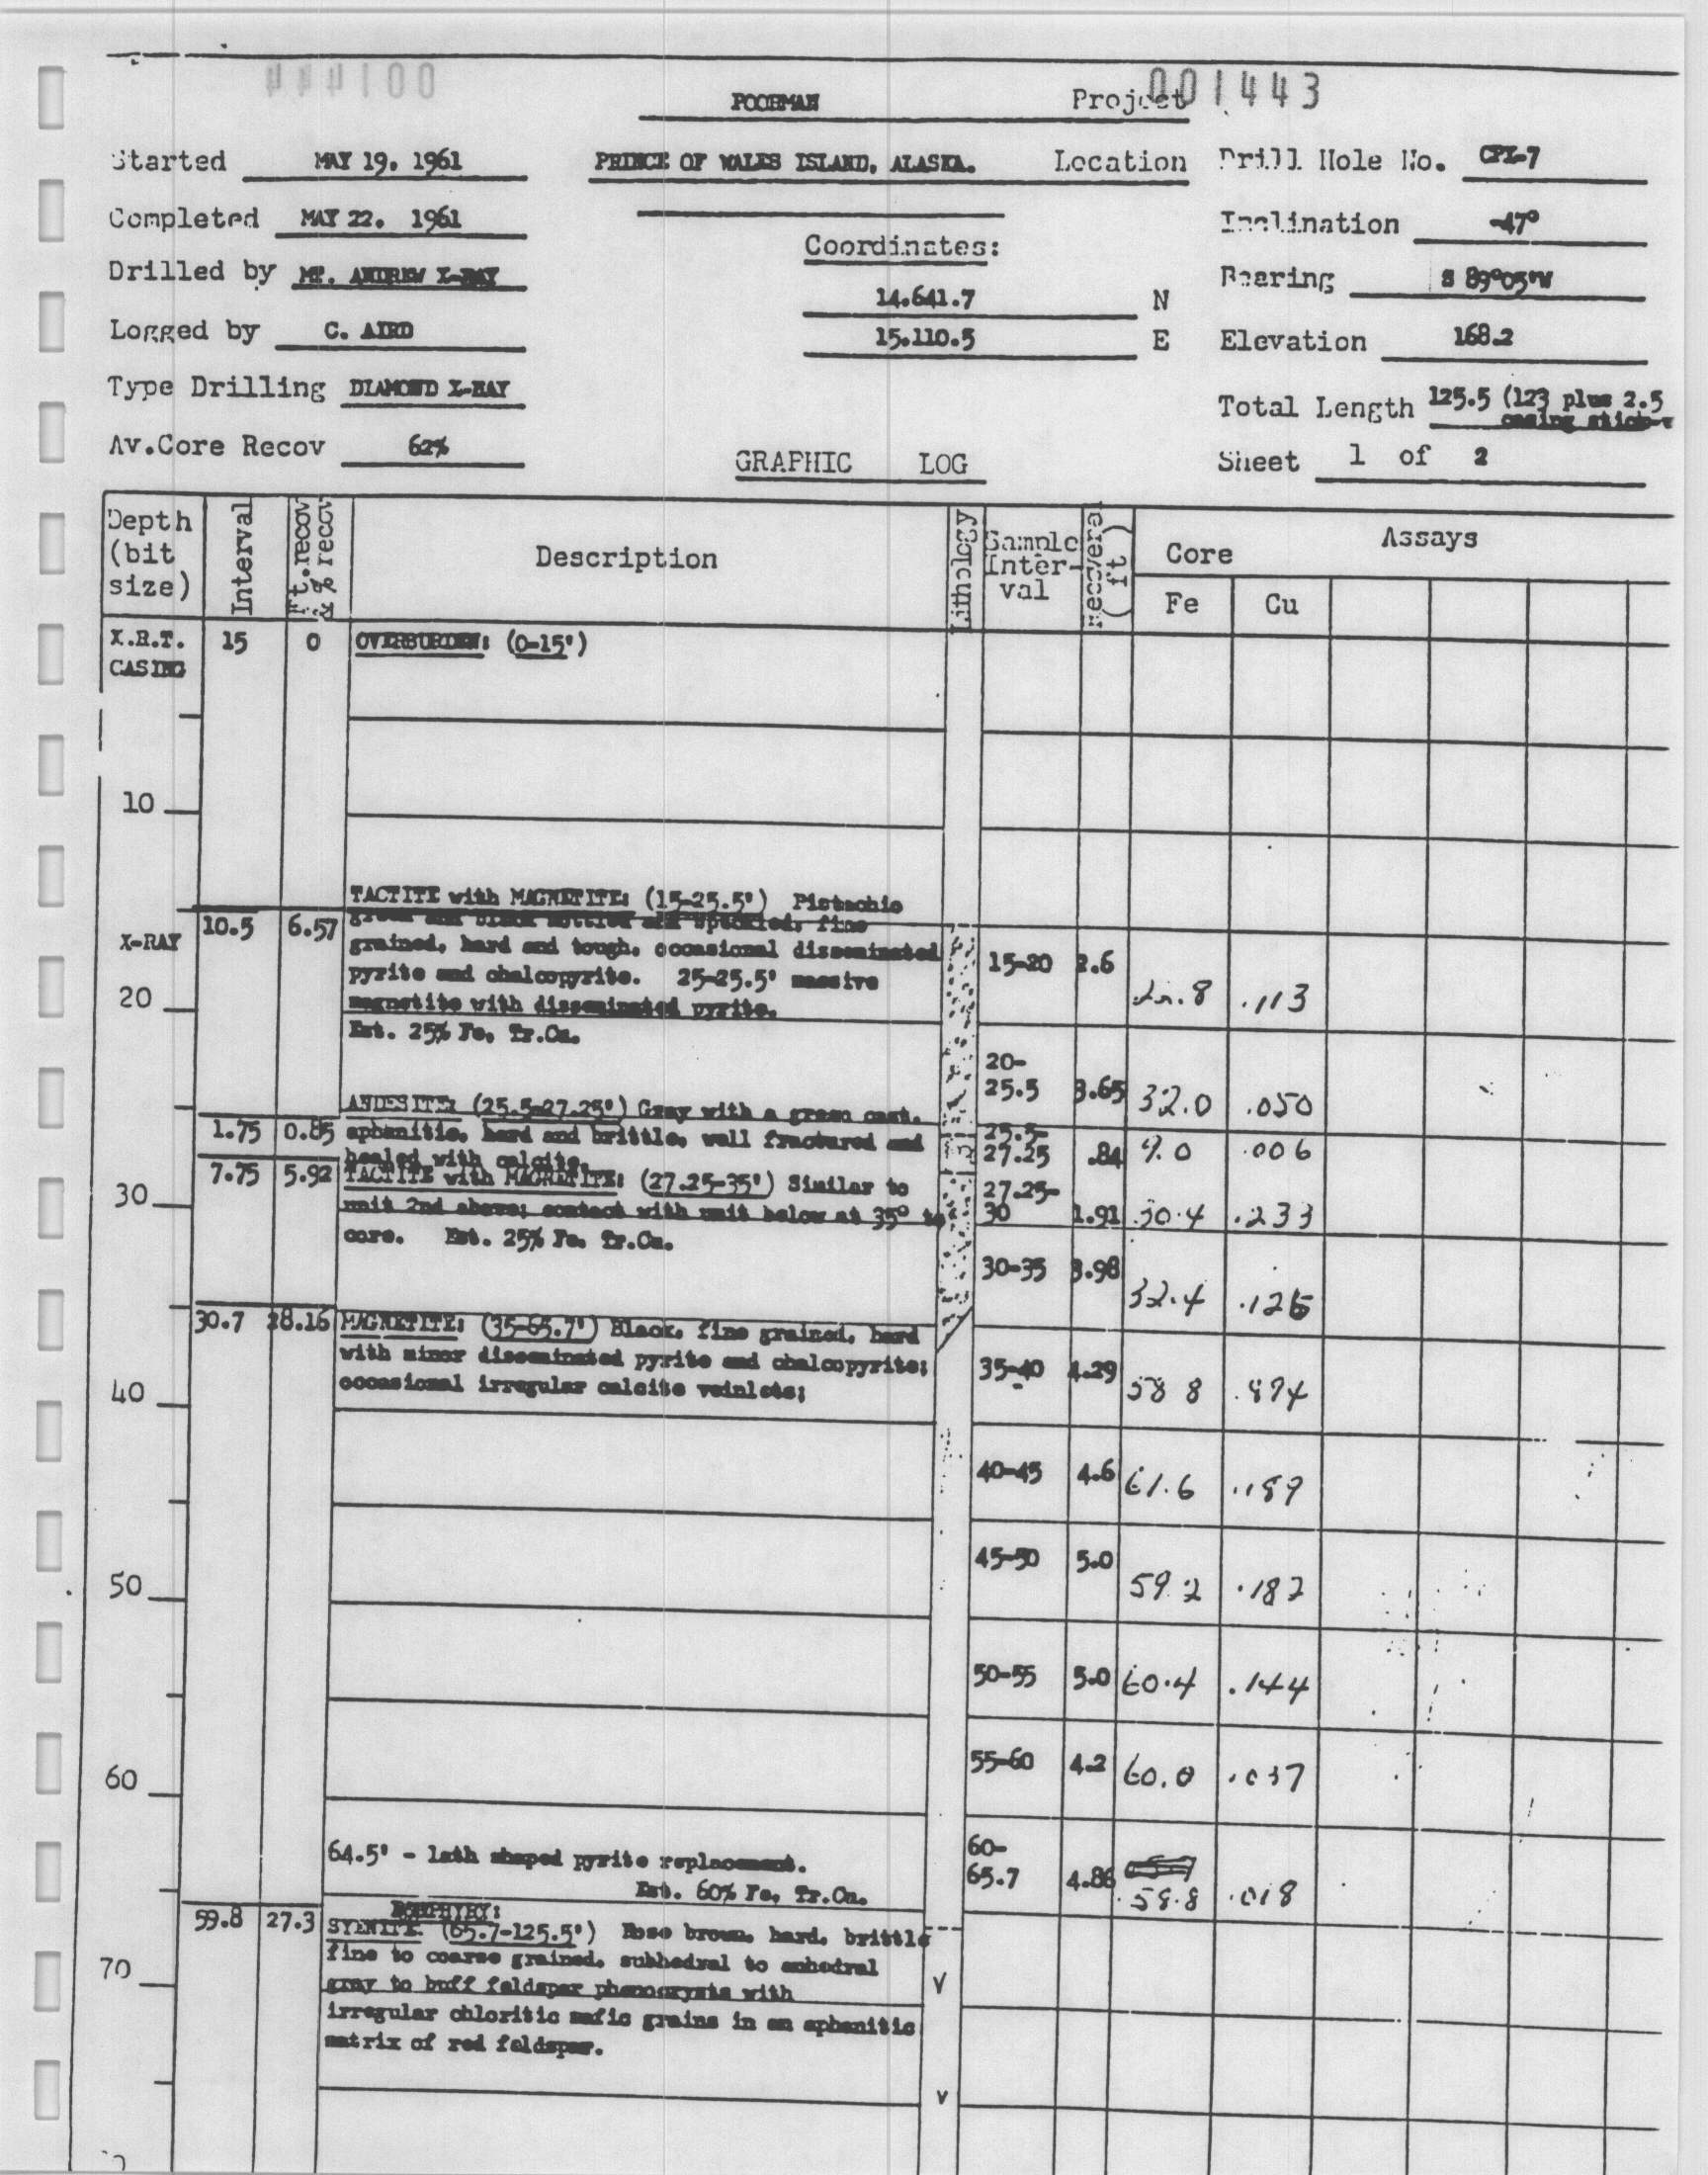 001443
POORMAN Project
Started MAY 19. 1961 PRINCE OF WALES ISLAND, ALASKA. Location Drill Hole No. CPX-7
Completed MAY 22. 1961 Inclination -47°
Coordinates:
Drilled by MT. ANDREW X-RAY Bearing S 89°05'W
14.641.7 N
Logged by C. AIRD 15.110.5 E Elevation 168.2
Type Drilling DIAMOND X-RAY Total Length 125.5 (123 plus 2.5
casing stick-
Av.Core Recov 62% GRAPHIC LOG Sheet 1 of 2
Depth (bit size) Interval Ft.recov & % recov Description Lithology Sample Inter-val Recovered (ft) Core Assays
Fe Cu
X.R.T. 15 0 OVERBURDEN: (0-15')
CASING
10
TACTITE with MAGNETITE: (15-25.5') Pistachio
10.5 6.57 green and black mottled and speckled, fine
X-RAY grained, hard and tough, occasional disseminated 15-20 2.6
pyrite and chalcopyrite. 25-25.5' massive
20 magnetite with disseminated pyrite. .8 .113
Est. 25% Fe, Tr.Cu.
20-
25.5 3.65 32.0 .050
ANDESITE: (25.5-27.25') Gray with a green cast,
1.75 0.85 aphanitic, hard and brittle, well fractured and 25.5-
healed with calcite. 27.25 .84 9.0 .006
7.75 5.92 TACTITE with MAGNETITE: (27.25-35') Similar to 27.25-
30 unit 2nd above; contact with unit below at 35° to 30 1.91 30.4 .233
core. Est. 25% Fe, Tr.Cu.
30-35 3.98
32.4 .126
30.7 28.16 MAGNETITE: (35-65.7') Black, fine grained, hard
with minor disseminated pyrite and chalcopyrite; 35-40 4.29
40 occasional irregular calcite veinlets; 58 8 .894
40-45 4.6 61.6 .189
45-50 5.0
50 59.2 .182
50-55 5.0 60.4 .144
55-60 4.2 60.0 .037
60
60-
64.5' - lath shaped pyrite replacement. 65.7 4.86
Est. 60% Fe, Tr.Cu. 58.8 .018
PORPHYRY:
59.8 27.3 SYENITE (65.7-125.5') Rose brown, hard, brittle
fine to coarse grained, subhedral to anhedral
70 gray to buff feldspar phenocrysts with V
irregular chloritic mafic grains in an aphanitic
matrix of red feldspar.
V